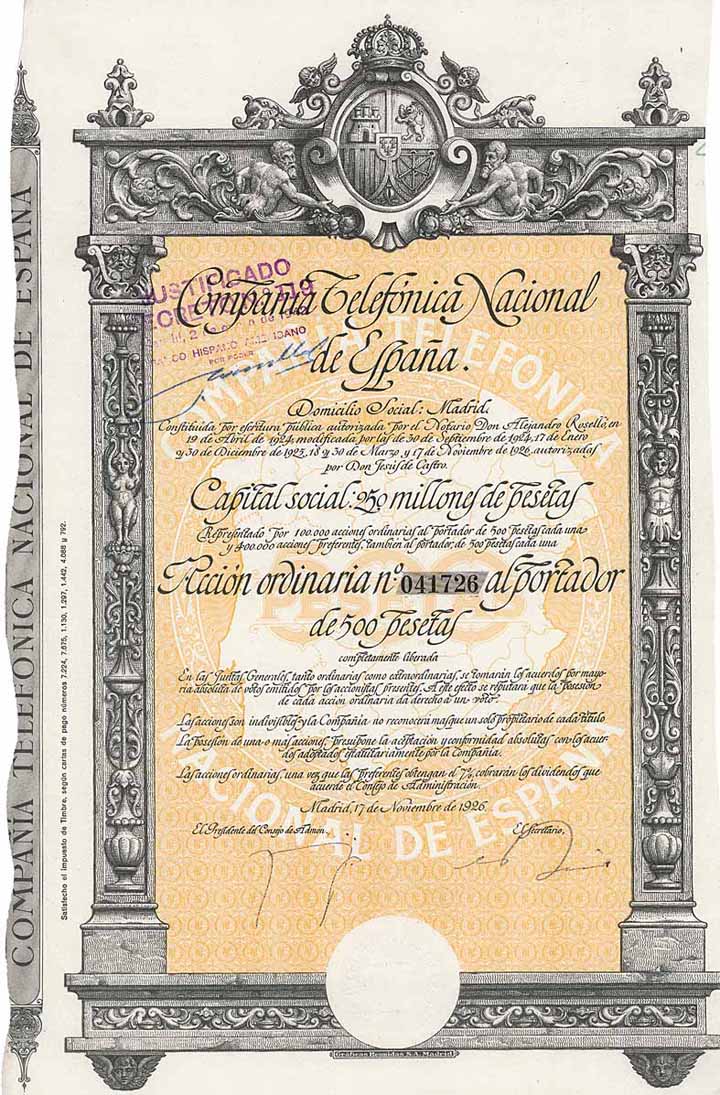 COMPAÑÍA TELEFÓNICA NACIONAL DE ESPAÑA
Satisfecho el impuesto de Timbre, según cartas de pago números 7.224, 7.675, 1.130, 1.297, 1.442, 4.088 y 792.
JUSTIFICADO
HISPANO AMERICANO
POR PODER
Compañía Telefónica Nacional
de España.
Domicilio Social: Madrid.
Constituida por escritura pública autorizada por el Notario Don Alejandro Roselló, en
19 de Abril de 1924, modificada por las de 30 de Septiembre de 1924, 17 de Enero
y 30 de Diciembre de 1925, 18 y 30 de Marzo y 17 de Noviembre de 1926, autorizadas
por Don Jesús de Castro.
Capital social: 250 millones de pesetas
Representado por 100.000 acciones ordinarias al portador de 500 pesetas cada una
y 400.000 acciones preferentes, también al portador, de 500 pesetas cada una
Acción ordinaria nº 041726 al portador
de 500 pesetas
completamente liberada
En las Juntas Generales, tanto ordinarias como extraordinarias, se tomarán los acuerdos por mayo-
ría absoluta de votos emitidos por los accionistas presentes. A este efecto se reputará que la posesión
de cada acción ordinaria da derecho a un voto.
Las acciones son indivisibles y la Compañía no reconocerá mas que un solo propietario de cada título
La posesión de una o mas acciones, presupone la aceptación y conformidad absolutas con los acuer-
dos adoptados estatutariamente por la Compañía.
Las acciones ordinarias, una vez que las preferentes obtengan el 7%, cobrarán los dividendos que
acuerde el Consejo de Administración.
Madrid, 17 de Noviembre de 1926.
El Presidente del Consejo de Admón.
El Secretario,
COMPAÑÍA TELEFÓNICA
PESETAS
NACIONAL DE ESPAÑA
Gráficas Reunidas S.A. Madrid